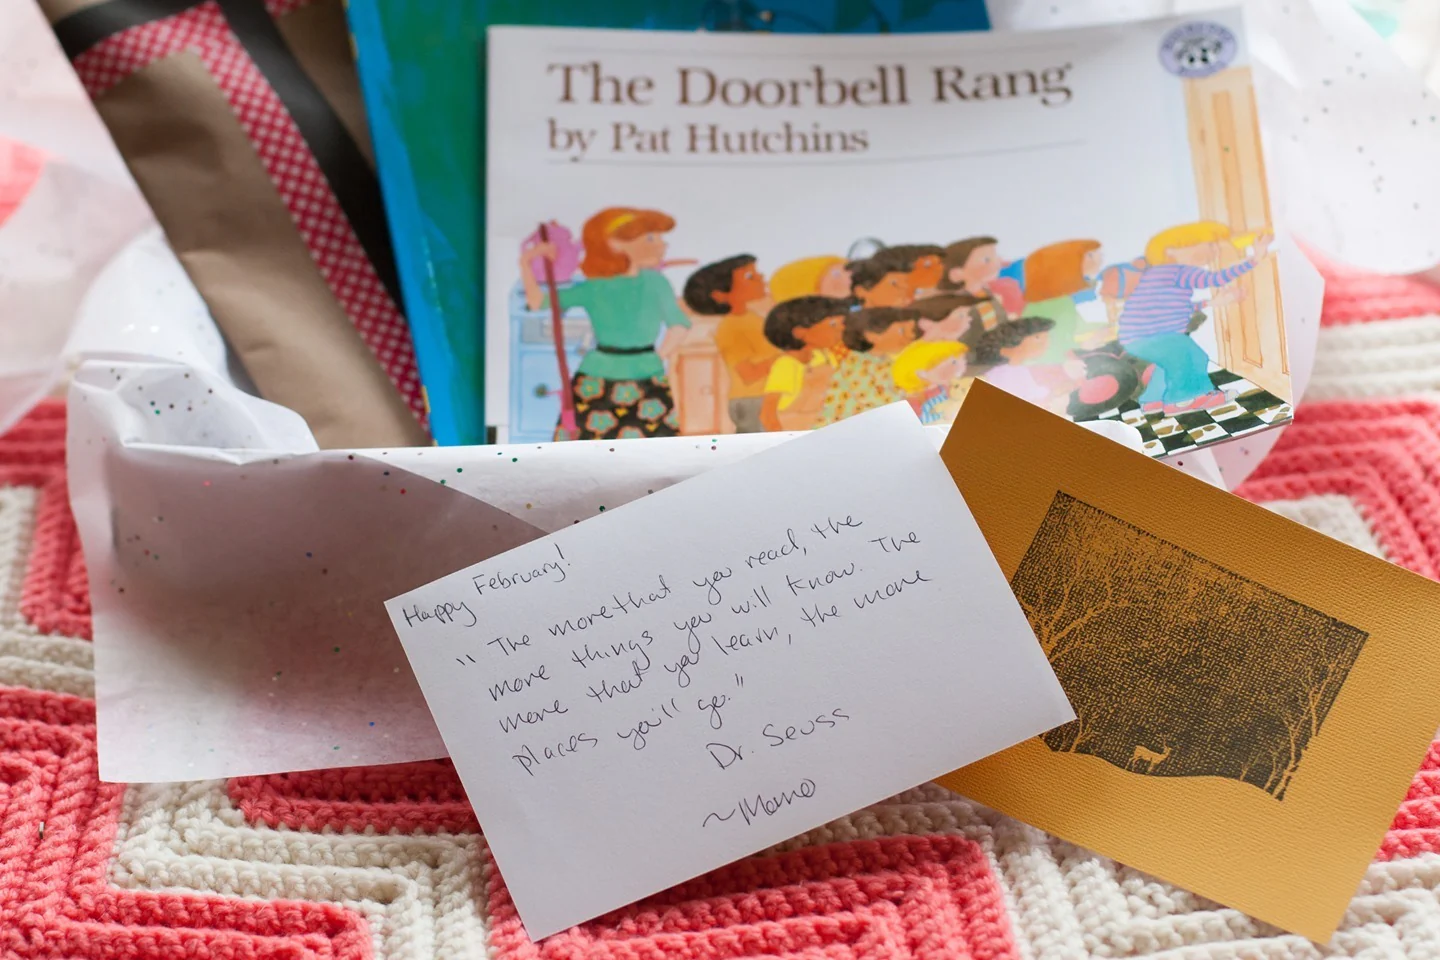 The Doorbell Rang
by Pat Hutchins
Happy February!
"The more that you read, the
more things you will know. The
more that you learn, the more
places you'll go."
Dr. Seuss
~Momo